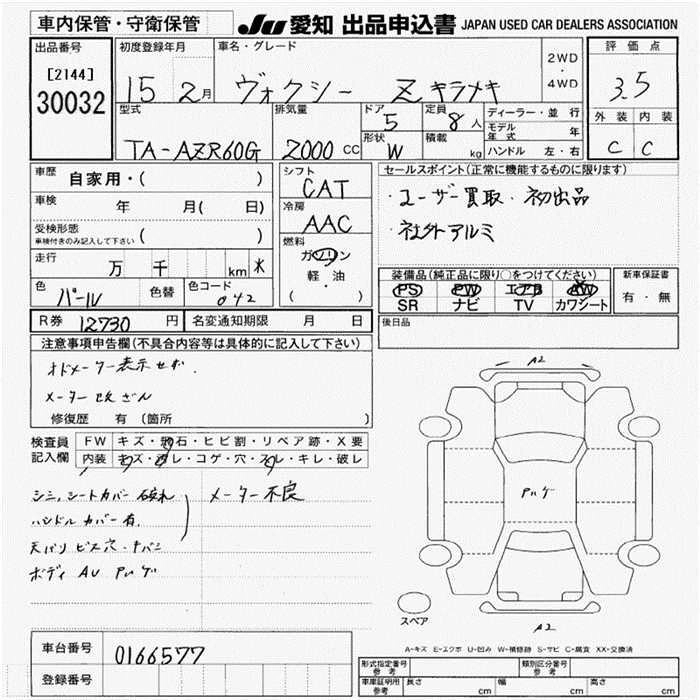 車内保管・守衛保管
JU 愛知 出品申込書 JAPAN USED CAR DEALERS ASSOCIATION
出品番号
[2144]
30032
初度登録年月
15 2月
車名・グレード
ヴォクシー Z キラメキ
2WD
・
4WD
評価点
3.5
外装 内装
C C
型式
TA-AZR60G
排気量
2000 CC
ドア
5
定員
8人
形状
W
積載
kg
ディーラー・並行
モデル年式 年
ハンドル 左・右
車歴 自家用・( )
車検 年 月( 日)
受検形態
車検付きのみ記入して下さい ( )
走行 万 千 km
色 パール 色替 色コード 042
シフト
CAT
冷房
AAC
燃料
ガソリン
軽・油
( )
セールスポイント(正常に機能するものに限ります)
・ユーザー買取・初出品
・社外アルミ
装備品(純正品に限り○をつけてください)
PS PW エアB AW
SR ナビ TV カワシート
新車保証書
有・無
R券 12730 円 名変通知期限 月 日
後日品
注意事項申告欄(不具合内容等は具体的に記入して下さい)
オドメーター表示せず.
メーター改ざん
修復歴 有 (箇所 )
検査員
記入欄
FW キズ・飛石・ヒビ割・リペア跡・X要
内装 キズ・汚レ・コゲ・穴・スレ・キレ・破レ
シミ,シートカバー破れ
メーター不良
ハンドルカバー有.
天バリ ビス穴・ヤバミ
ボディ AU Pハゲ
A2
Pハゲ
A2
スペア
A-キズ E-エクボ U-凹み W-補修跡 S-サビ C-腐食 XX-交換済
車台番号 0166577
登録番号
形式指定番号
参考
類別区分番号
参考
車庫証明用
参考
長さ cm 幅 cm 高さ cm